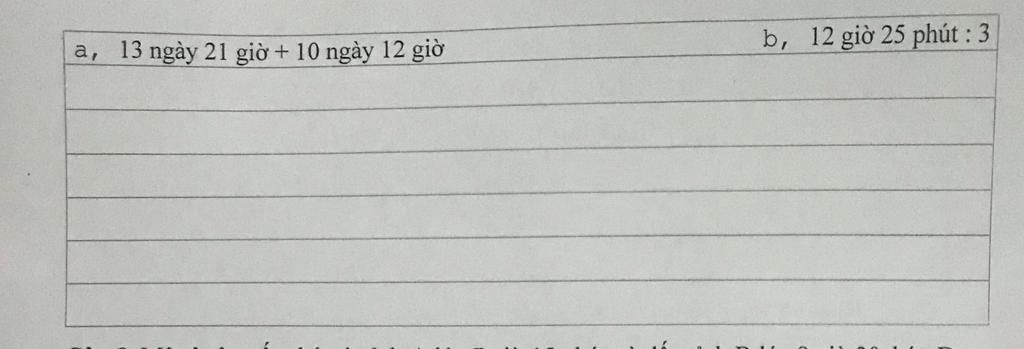 a, 13 ngày 21 giờ + 10 ngày 12 giờ
b, 12 giờ 25 phút : 3